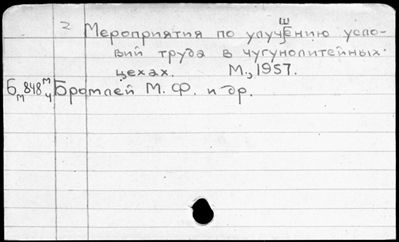 2 Мероприятия по улучшению усло-
вий труда в чугунолитейных
цехах. М., 1957.
Бм 848 м/ч Бромлей М. Ф. и др.